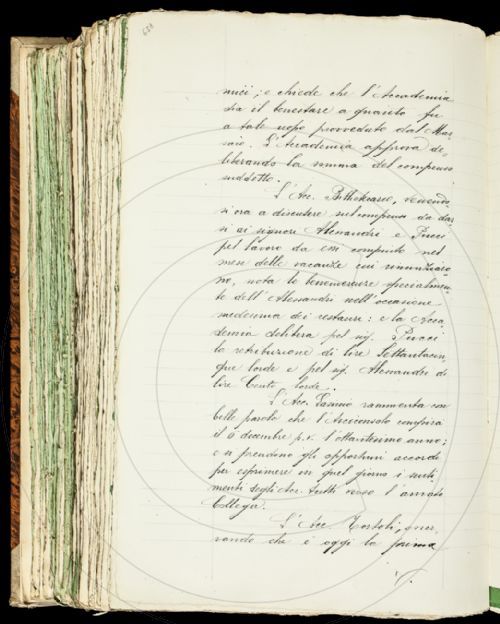 mici; e chiede che l'Accademia
dia il benestare a quanto fu
a tale uopo provveduto dal Mas-
saio. L'Accademia approva de-
liberando la somma del compenso
suddetto.
L'Acc. Bibliotecario, venendo-
si ora a discutere sul compenso da dar-
si ai signori Alessandri e Pucci
pel lavoro da essi compiuto nel
mese delle vacanze cui rinunziaro-
no, nota le benemerenze specialmen-
te dell'Alessandri nell'occasione
medesima dei restauri: e la Acca-
demia delibera pel sig. Pucci
la retribuzione di lire Settantacin-
que lorde e pel sig. Alessandri di
lire Cento lorde.
L'Acc. rammenta con
belle parole che l'Arciconsolo compirà
il 6 decembre p.v. l'ottantesimo anno;
e si prendono gli opportuni accordi
per esprimere in quel giorno i senti-
menti degli Acc. tutti verso l'amato
Collega.
L'Acc. Tortoli, osser-
vando che è oggi la prima